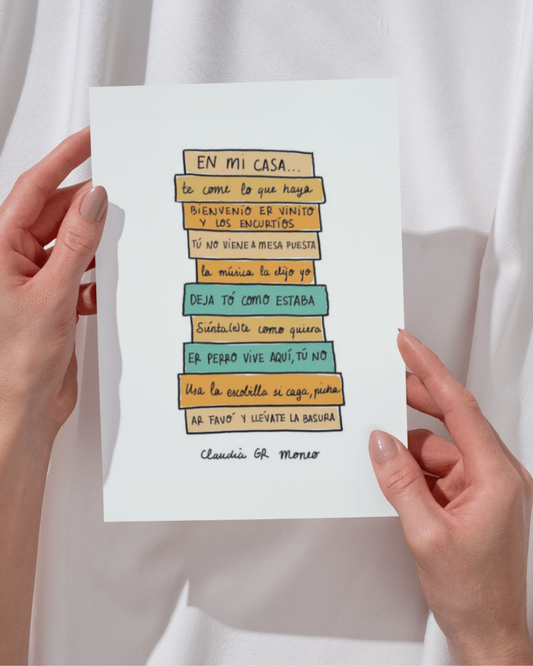 EN MI CASA...
te come lo que haya
BIENVENIO ER VINITO
Y LOS ENCURTIOS
TÚ NO VIENE A MESA PUESTA
la música la elijo yo
DEJA TÓ COMO ESTABA
Siénta(e)te como quiera
ER PERRO VIVE AQUÍ, TÚ NO
Usa la escobilla si caga, picha
AR FAVÓ Y LLÉVATE LA BASURA
Claudia GR Moneo